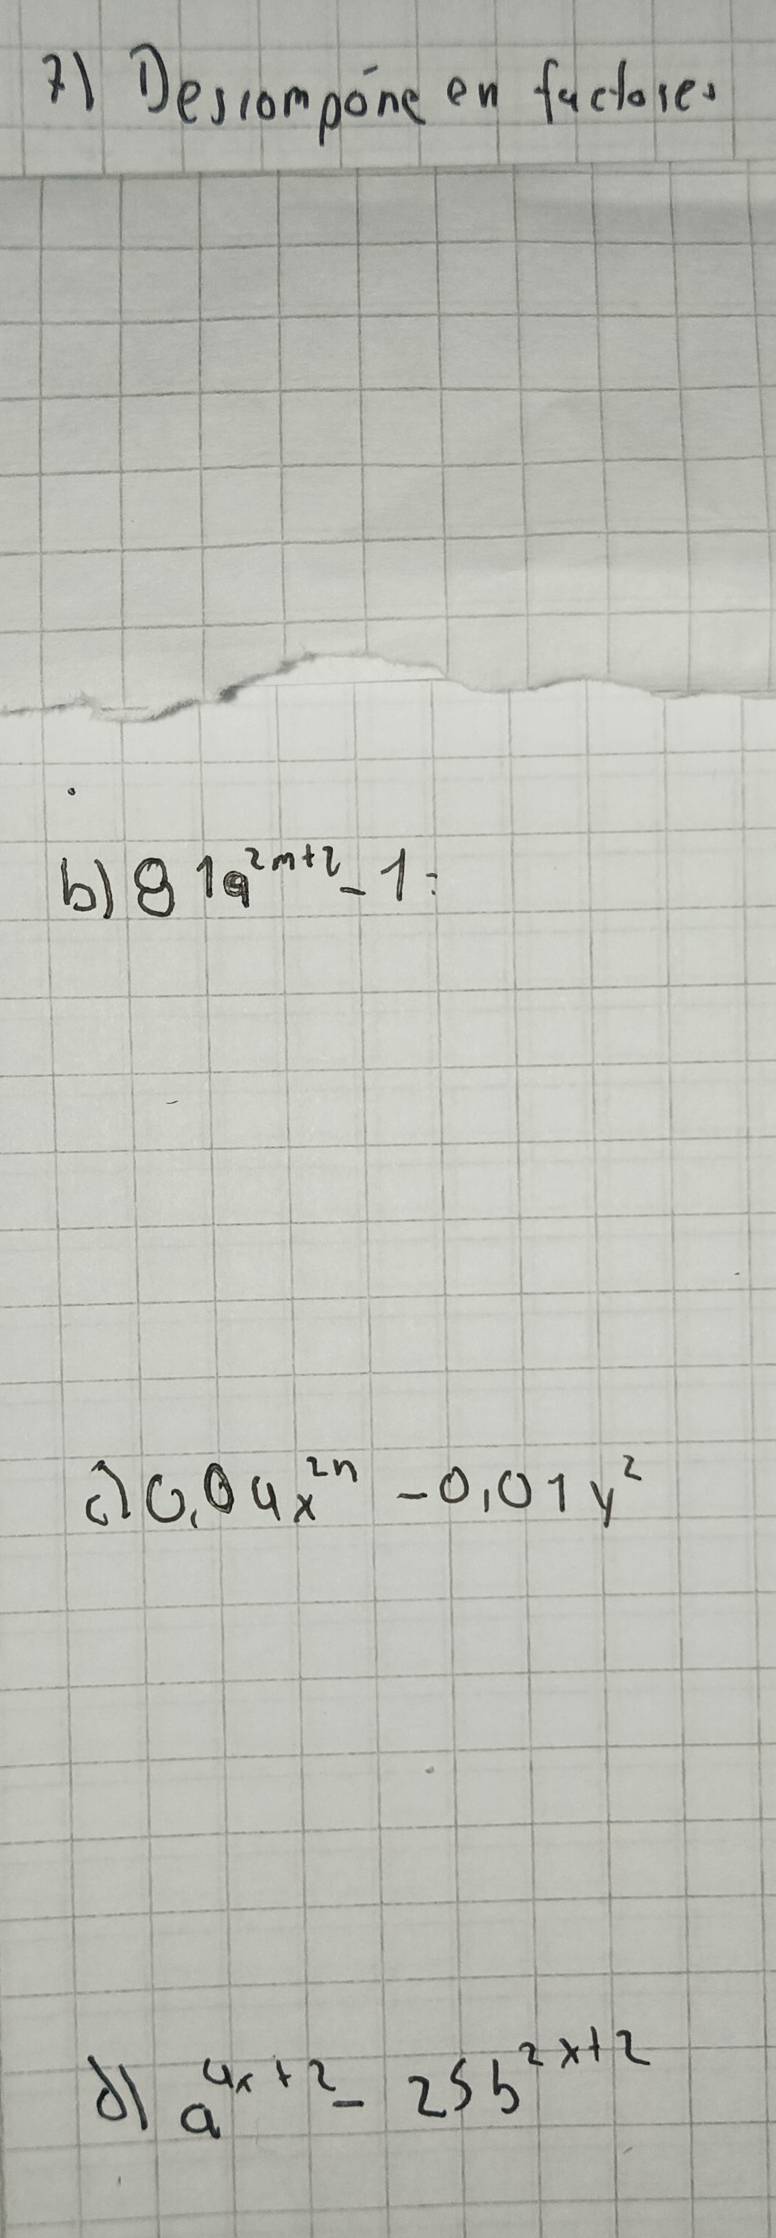 7) Descompone en factores
b) 81a^{2m+2} - 1:
c) 0,04x^{2n} - 0,01y^2
d) a^{4x+2} - 25b^{2x+2}